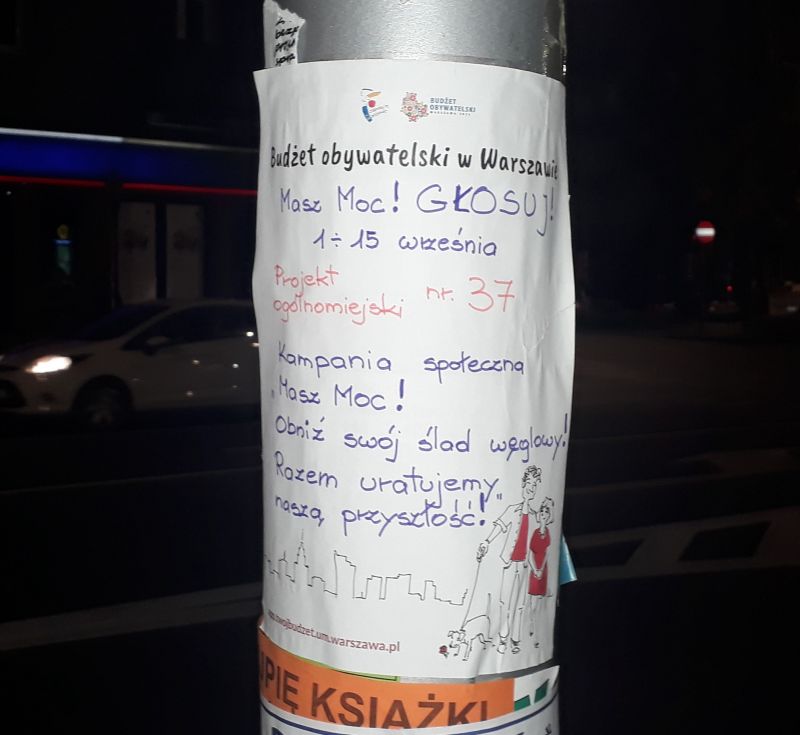 BUDŻET
OBYWATELSKI
Budżet obywatelski w Warszawie
Masz Moc! GŁOSUJ!
1÷15 września
Projekt
ogólnomiejski nr. 37
Kampania społeczna
„Masz Moc!
Obniż swój ślad węglowy!
Razem uratujemy
naszą przyszłość!"
twojbudzet.um.warszawa.pl
UPIĘ KSIĄŻKI